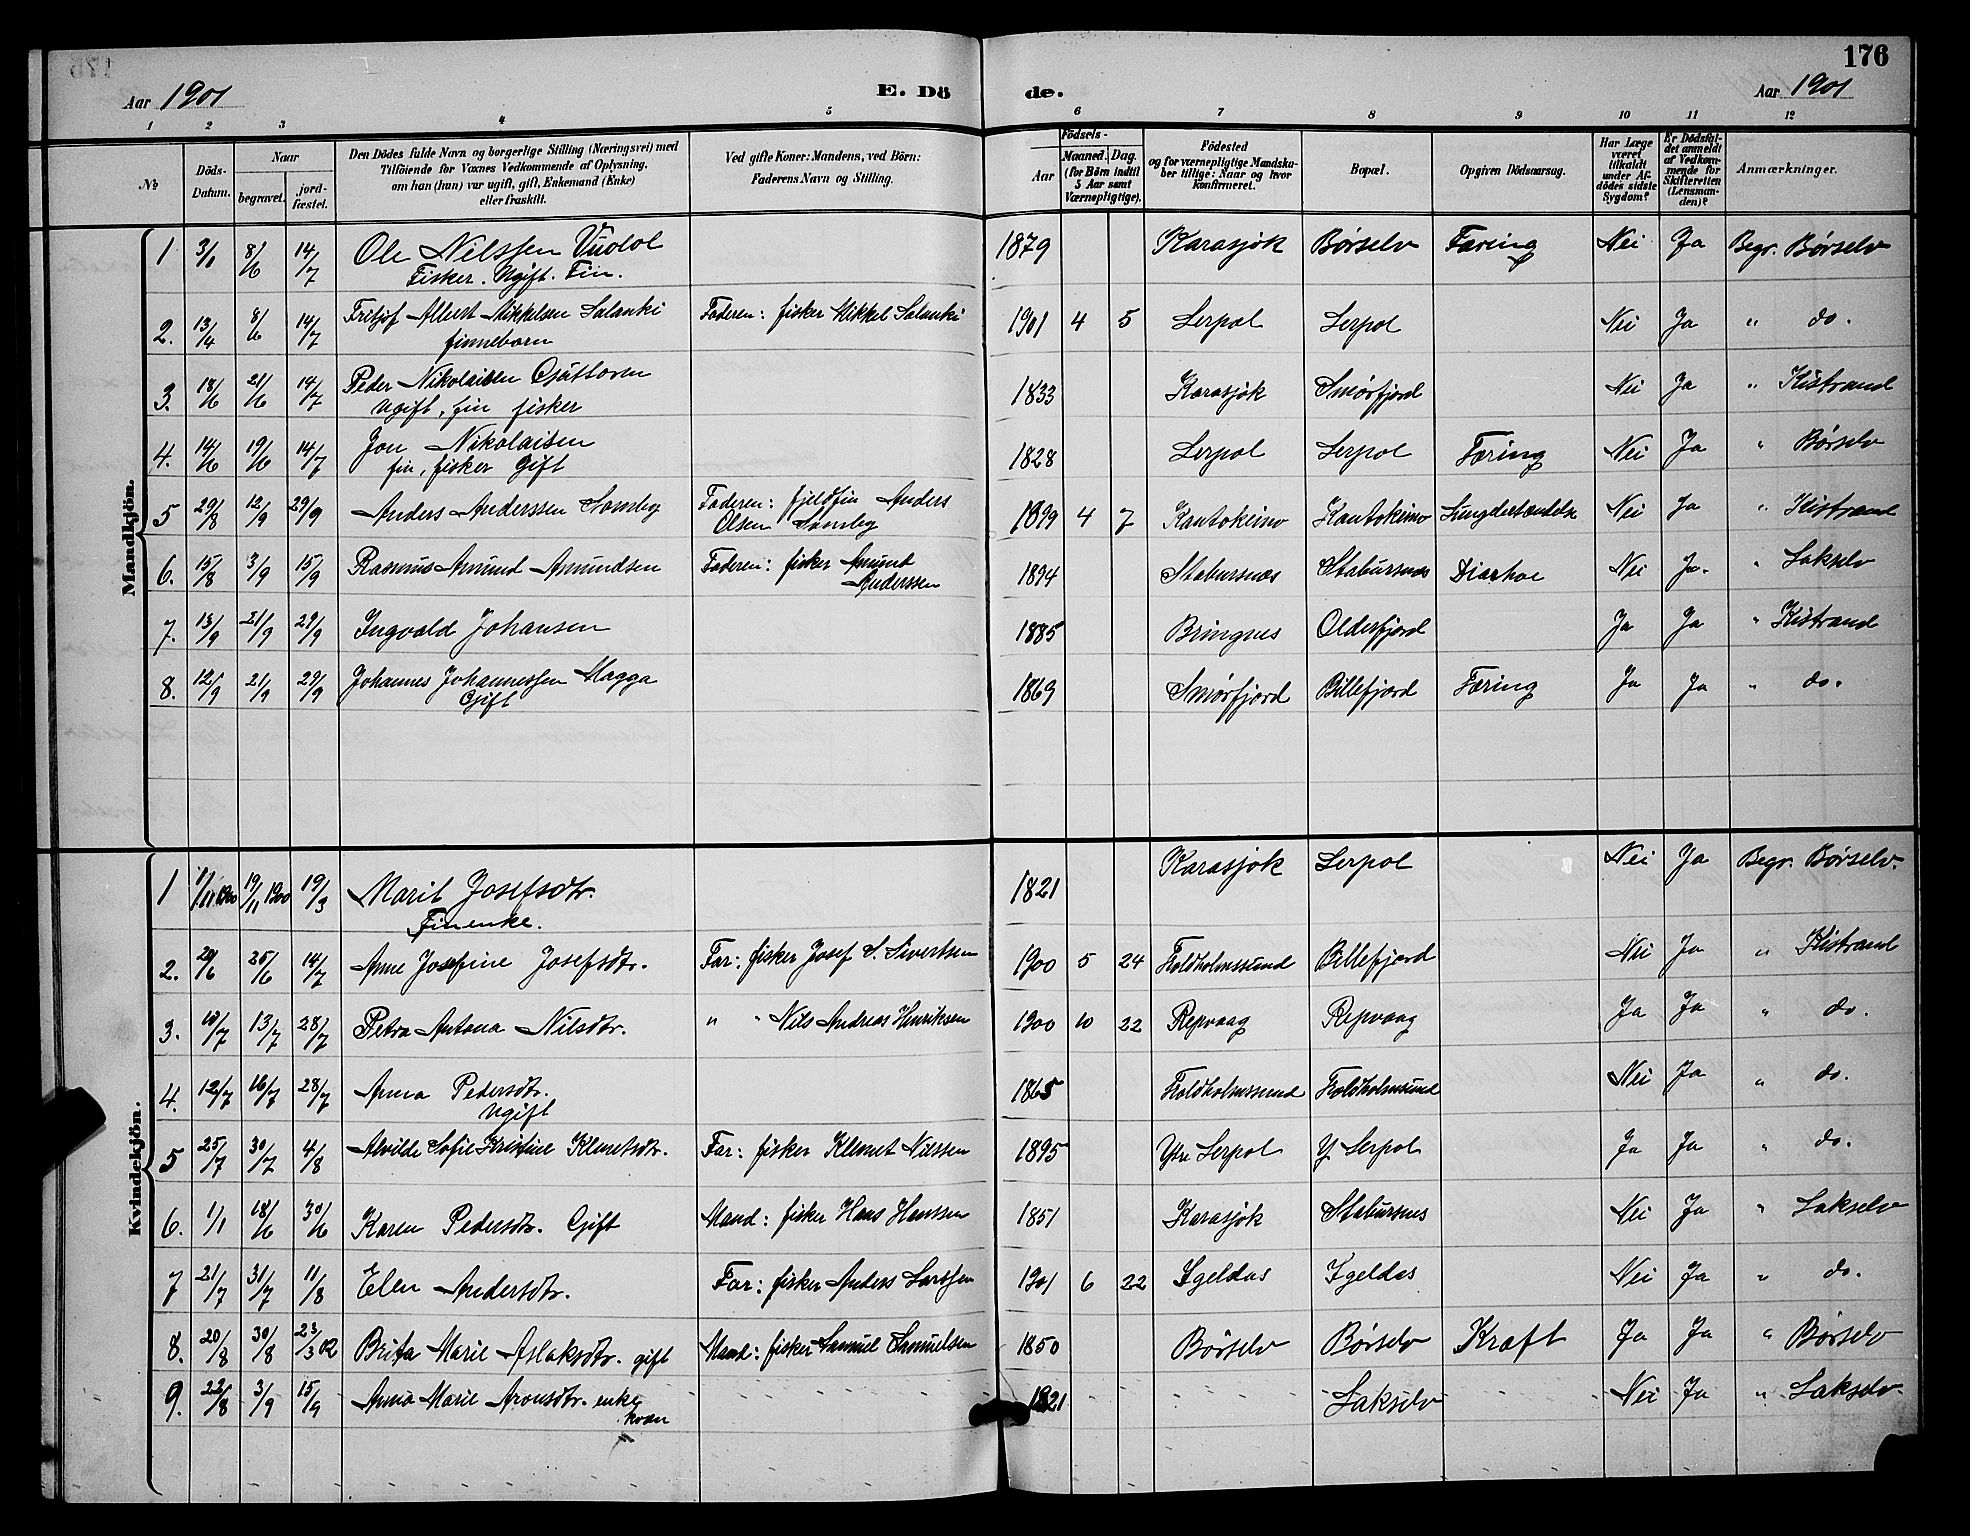 176
Aar 1901 E. Dö de. Aar 1901
1 2 3 4 5 6 7 8 9 10 11 12
№
Döds-Datum.
Naar
begravet.
jord-fæstet.
Den Dödes fulde Navn og borgerlige Stilling (Næringsvei) med
Tilföiende for Voxnes Vedkommende af Oplysning,
om han (hun) var ugift, gift, Enkemand (Enke)
eller fraskilt.
Ved gifte Koner: Mandens, ved Börn:
Faderens Navn og Stilling.
Födsels-
Aar
Maaned. Dag.
(for Börn indtil
5 Aar samt
Værnepligtige).
Födested
og for værnepligtige Mandska-
ber tillige: Naar og hvor
konfirmeret.
Bopæl.
Opgiven Dödsaarsag.
Har Læge
været
tilkaldt
under Af-
dödes sidste
Sygdom?
Er Dödsfal-
det anmeldt
af Vedkom-
mende for
Skifteretten
(Lensman-
den)?
Anmærkninger.
Mandkjön.
1 3/1 8/6 14/7 Ole Nilssen Vuolol 1879 Karasjok Børselv Tæring Nei Ja Begr. Børselv
Fisker. Ugift. Fin.
2. 13/4 8/6 14/7 Fritjof Albert Mikkelsen Salanki Faderen: fisker Mikkel Salanki 1901 4 5 Lerpol Lerpol Nei Ja " do.
finnebarn
3. 18/6 21/6 14/7 Peder Nikolaisen 1833 Karasjok Smørfjord Nei Ja " Kistrand
ugift, fin fisker
4. 14/6 19/6 14/7 Jon Nikolaisen 1828 Lerpol Lerpol Tæring Nei Ja " Børselv
fin, fisker gift
5 29/8 12/9 29/9 Anders Anderssen Somby Faderen: fjeldfin Anders 1899 4 7 Kautokeino Kautokeino Lungebetændelse Nei Ja " Kistrand
Olsen Somby
6. 15/8 3/9 15/9 Rasmus Amund Amundsen Faderen: fisker Amund 1894 Stabursnæs Stabursnæs Diarhoe Nei Ja. " Lakselv
Anderssen
7. 13/9 21/9 29/9 Ingvald Johansen 1885 Bringnes Olderfjord Ja Ja " Kistrand
8. 12/9 21/9 29/9 Johannes Johannessen Magga 1869 Smørfjord Billefjord Tæring Ja Ja " do.
Gift
Kvindekjön.
1 1/11 1900 19/11 1900 19/3 Marit Josefsdtr. 1821 Karasjok Lerpol Nei Ja Begr. Børselv.
Finenke.
2. 20/6 25/6 14/7 Anne Josefine Josefsdtr. Far: fisker Josef S. Sivertsen 1900 5 24 Koldholmssund Billefjord Nei Ja " Kistrand
3. 10/7 13/7 28/7 Petra Antona Nilsdtr. " " Nils Andreas Henriksen 1900 10 22 Repvaag Repvaag Ja Ja " do.
4. 12/7 16/7 28/7 Anna Pedersdtr. 1865 Koldholmssund Koldholmsund Nei Ja " do.
ugift
5 25/7 30/7 4/8 Alvilde Sofie Kristine Klemetsdtr. Far: fisker Klemet Nilssen 1895 Ytre Lerpol Y. Lerpol Ja Ja " do.
6. 1/1 18/6 30/6 Karen Pedersdtr. Gift Mand: fisker Hans Hanssen 1851 Karasjok Stabursnes Nei Ja " Lakselv
7 21/7 31/7 11/8 Elen Andersdtr. Far: fisker Anders Larssen 1901 6 22 Igeldas Igeldas Nei Ja " do.
8. 20/8 30/8 23/3 02 Brita Marie Aslaksdtr. gift Mand: fisker Samuel Samuelsen 1850 Børselv Børselv Kræft Ja Ja " Børselv
9. 22/8 3/9 15/9 Anna Marie Aronsdtr. enke 1821 Lakselv Nei Ja " Lakselv.
kvæn